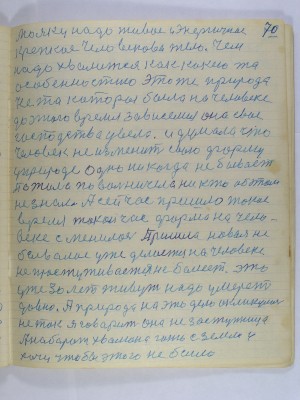 70
моянку надо живое энергичное
крепкое человеческое тело. Чем
надо хвалится как какою жа
особенностию Это же природа
не та которая была на человеке
до этого время зависемея она свое
господство увела. и думала что
человек не изменит свою форму
природе одно никогда не бывает
пожило по волничела никто об этом
не знал. А сейчас пришло такое
время такой час форма на чело-
веке сменилась Пришла новая не
бывалое уже делается на человеке
не простуживается не болеет. это
уже 30 лет живут надо умереть
давно. А природа на это дело
не так я говарит она не заступница
Анабарот хвалона гонь с Земли я
хочу чтобы этого не было